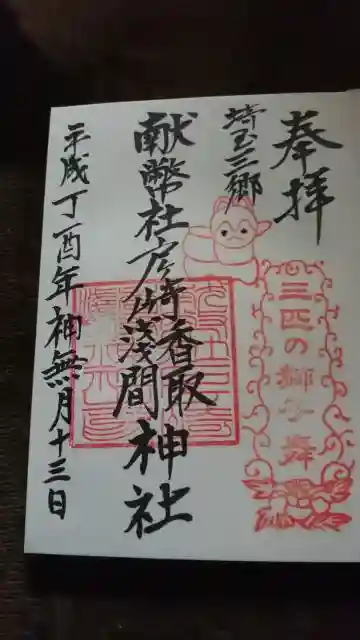 奉拝
三匹の獅子舞
埼玉三郷
献幣社彦倚香取
浅間神社
平成丁酉年神無月十三日